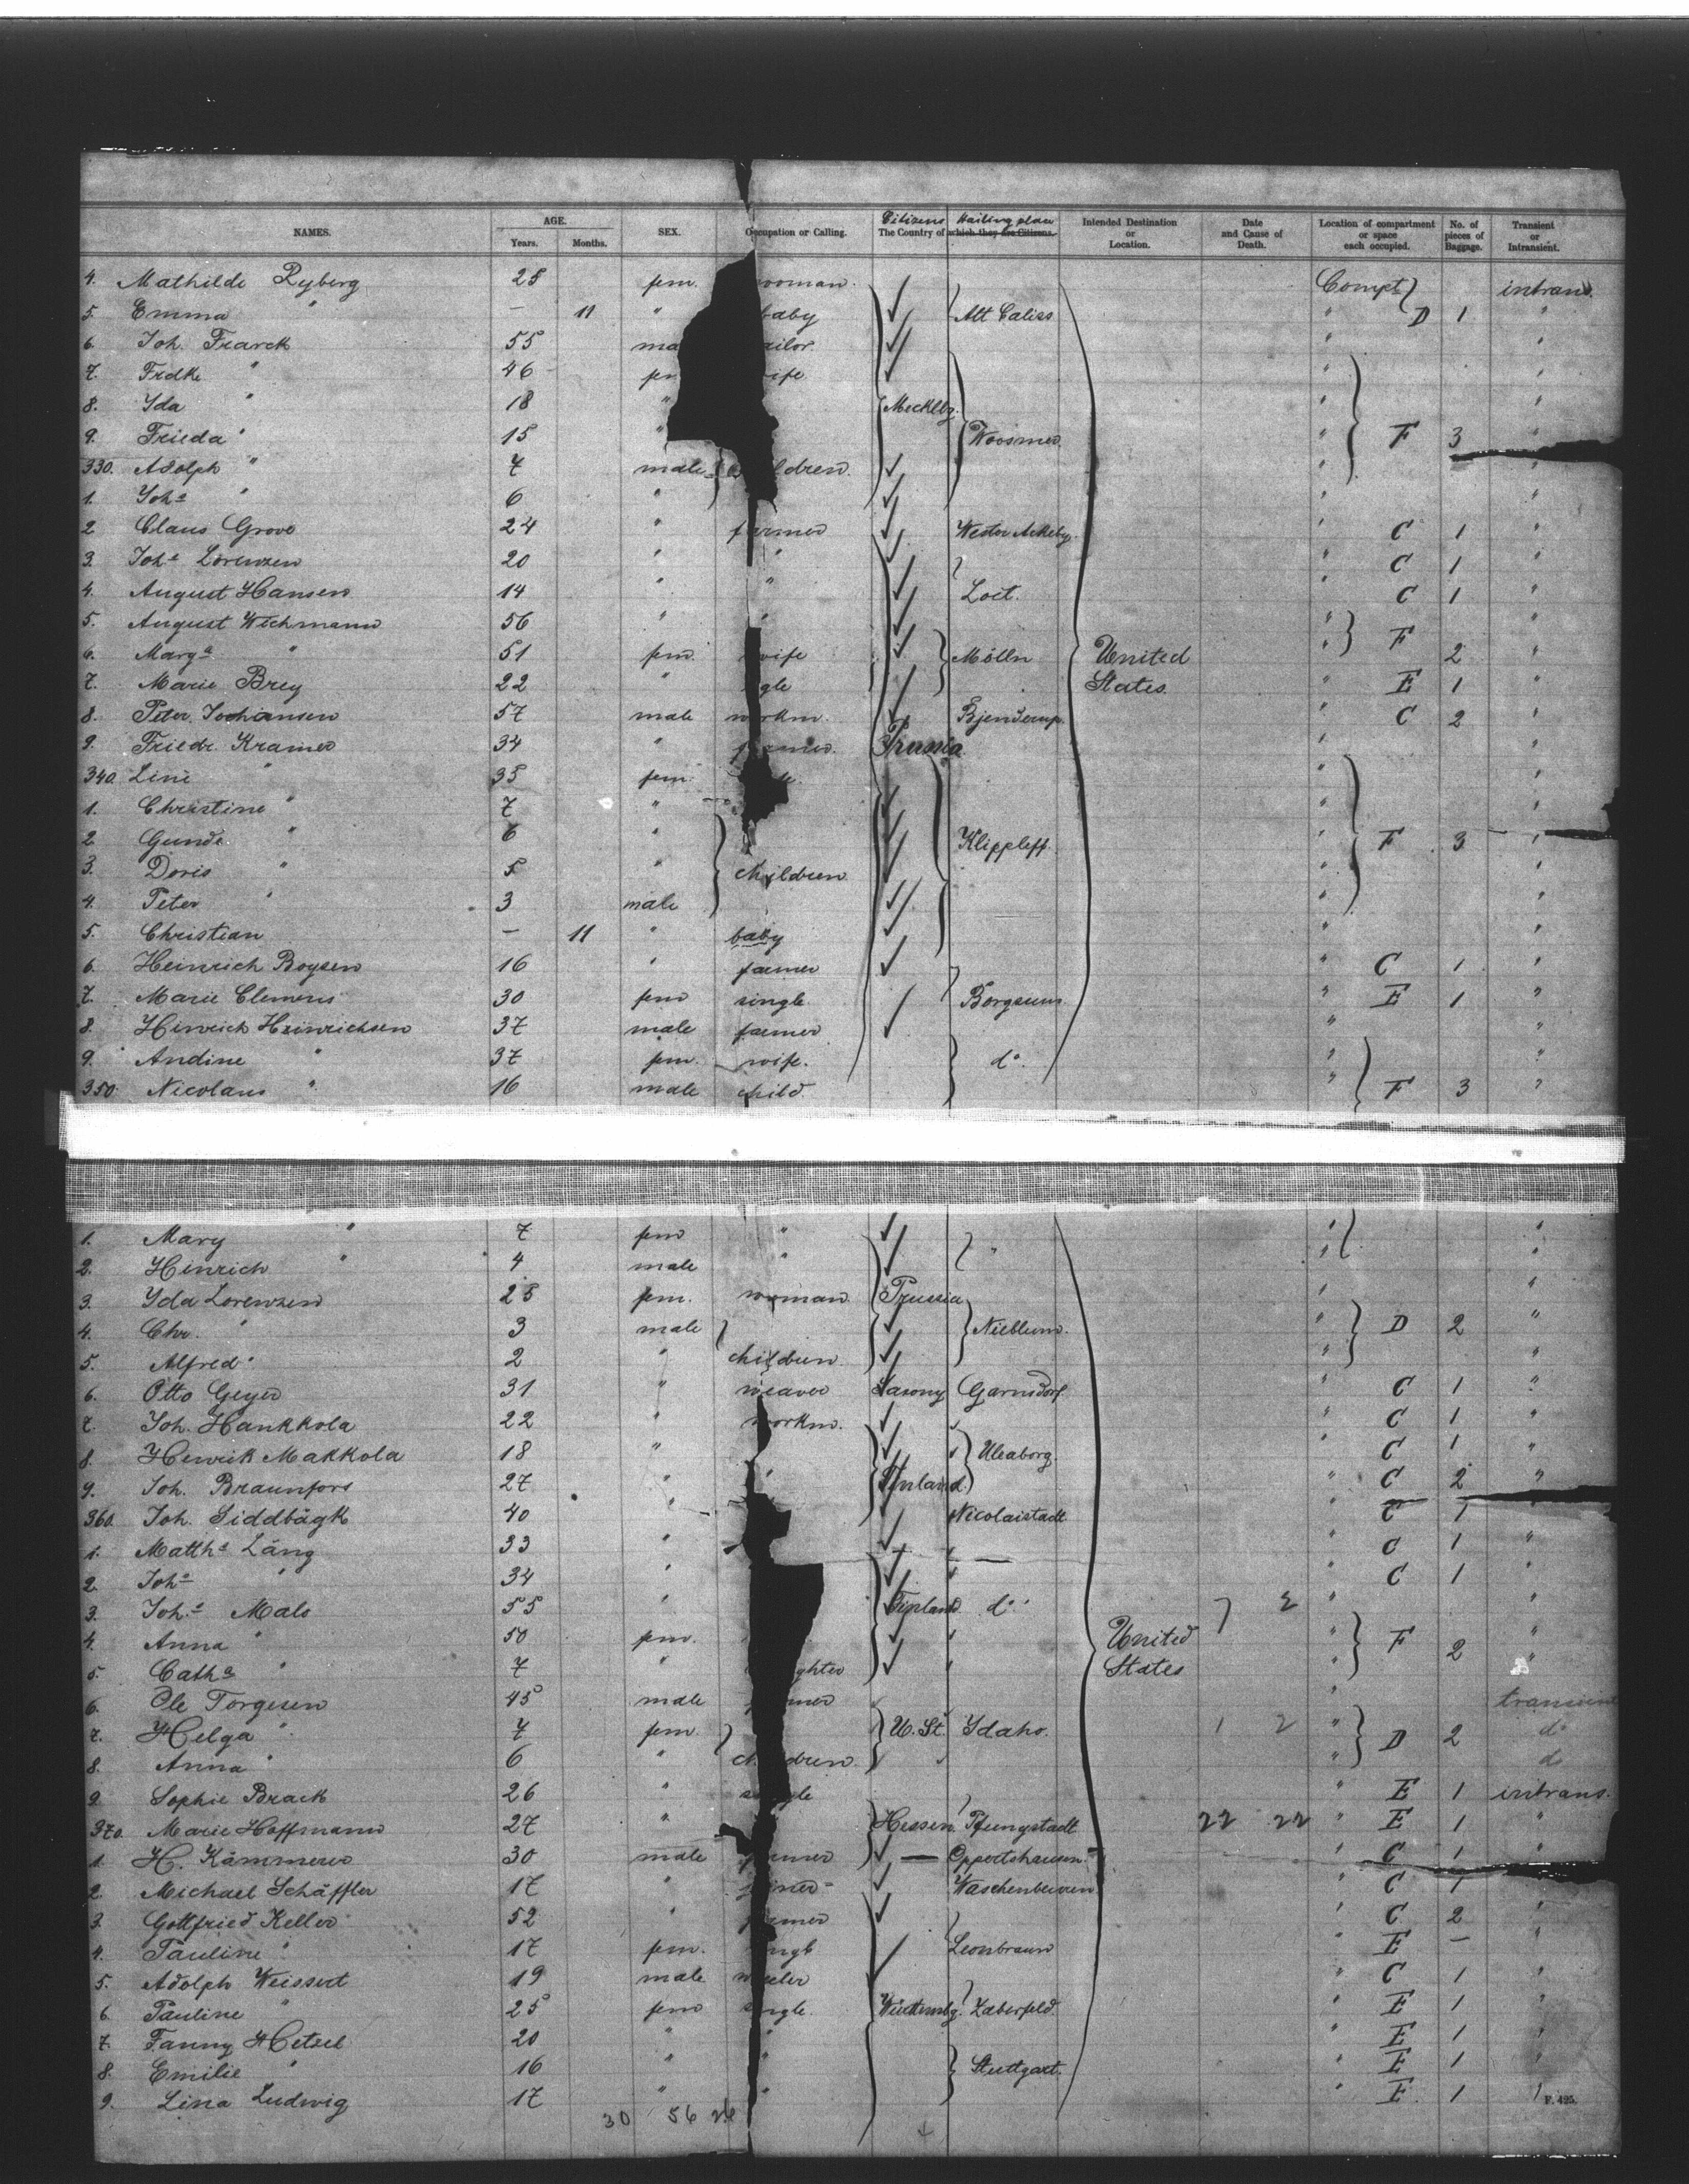 NAMES. AGE. Years. Months. SEX. Occupation or Calling. Citizens The Country of which they are Citizens. Hailing place Intended Destination or Location. Date and Cause of Death. Location of compartment or space each occupied. No. of pieces of Baggage. Transient or Intransient.
4. Mathilde Ryberg 25 fem. woman. Compt intrans.
5. Emma " — 11 " baby Alt Caliss " D 1 "
6. Joh. Franck 55 ma ailor. " "
7. Frdke " 46 fe ife " "
8. Ida " 18 " Mecklbg. " "
9. Frieda " 15 " Woosmer. " F 3 "
330. Adolph " 7 male ldren " "
1. Joha " 6 " " "
2 Claus Grove 24 " farmer Wester Ackeby. " C 1 "
3. Joha Lorenzen 20 " " " C 1 "
4. August Hansen 14 " " Loit. " C 1 "
5. August Wichmann 56 " " " F "
6. Marga " 51 fem. wife Mölln United " 2 "
7. Marie Brey 22 " gle States. " E 1 "
8. Peter Jochimsen 57 male workm. Bjenderup. " C 2 "
9. Friedr. Kramer 34 " farmer. Prussia " "
340. Line " 35 fem. " "
1. Christine " 7 " " "
2 Gunde " 6 " Klippleff. " F 3 "
3. Doris " 5 " children " "
4. Peter " 3 male " "
5. Christian — 11 " baby " "
6. Heinrich Boysen 16 " farmer " C 1 "
7. Marie Clemens 30 fem single. Borgsum. " E 1 "
8. Hinrich Heinrichsen 37 male farmer " "
9. Andine " 37 fem. wife. do. " "
350. Nicolaus " 16 male child " F 3 "
1. Mary " 7 fem " " "
2. Heinrich " 4 male " " " "
3. Ida Lorenzen 25 fem. woman Prussia " "
4. Chr. " 3 male Nieblum. " D 2 "
5. Alfred " 2 " children " "
6. Otto Geyer 31 " weaver Saxony Garnsdorf " C 1 "
7. Joh. Hankkola 22 " workm. " C 1 "
8. Henrik Makkola 18 " Uleaborg. " C 1 "
9. Joh. Braunfors 27 " " Finland. " C 2 "
360. Joh. Siddbägk 40 " Nicolaistadt C 1
1. Mattha Läng 33 " " C 1 "
2. Joha " 34 " " C 1 "
3. Joha Malo 55 " Finland do. " "
4. Anna " 50 fem. United " F 2 "
5. Catha " 7 " ghter States " "
6. Ole Torgesen 45 male mer " transient
7. Helga " 7 fem. U. St. Idaho. 1 2 " D 2 do
8. Anna " 6 " children. " do
9. Sophie Brack 26 " single " E 1 intrans.
370. Marie Hoffmann 27 " Hessen. Pfungstadt 22 22 " E 1 "
1. H. Kämmerer 30 male farmer — Oppertshausen. C 1 "
2. Michael Schäffler 17 " Waschenbeuren " C 1 "
3. Gottfried Keller 52 " farmer " C 2 "
4. Pauline " 17 fem. ngle Leonbronn " E — "
5. Adolph Weissert 19 male " C 1 "
6. Pauline " 25 fem single. Württembg. Zaberfeld. " E 1 "
7. Fanny Hetzel 20 " " " E 1 "
8. Emilie " 16 " " Stuttgart. " E 1 "
9. Lina Ludwig 17 " " " E. 1 "
30 56 26 F. 495.